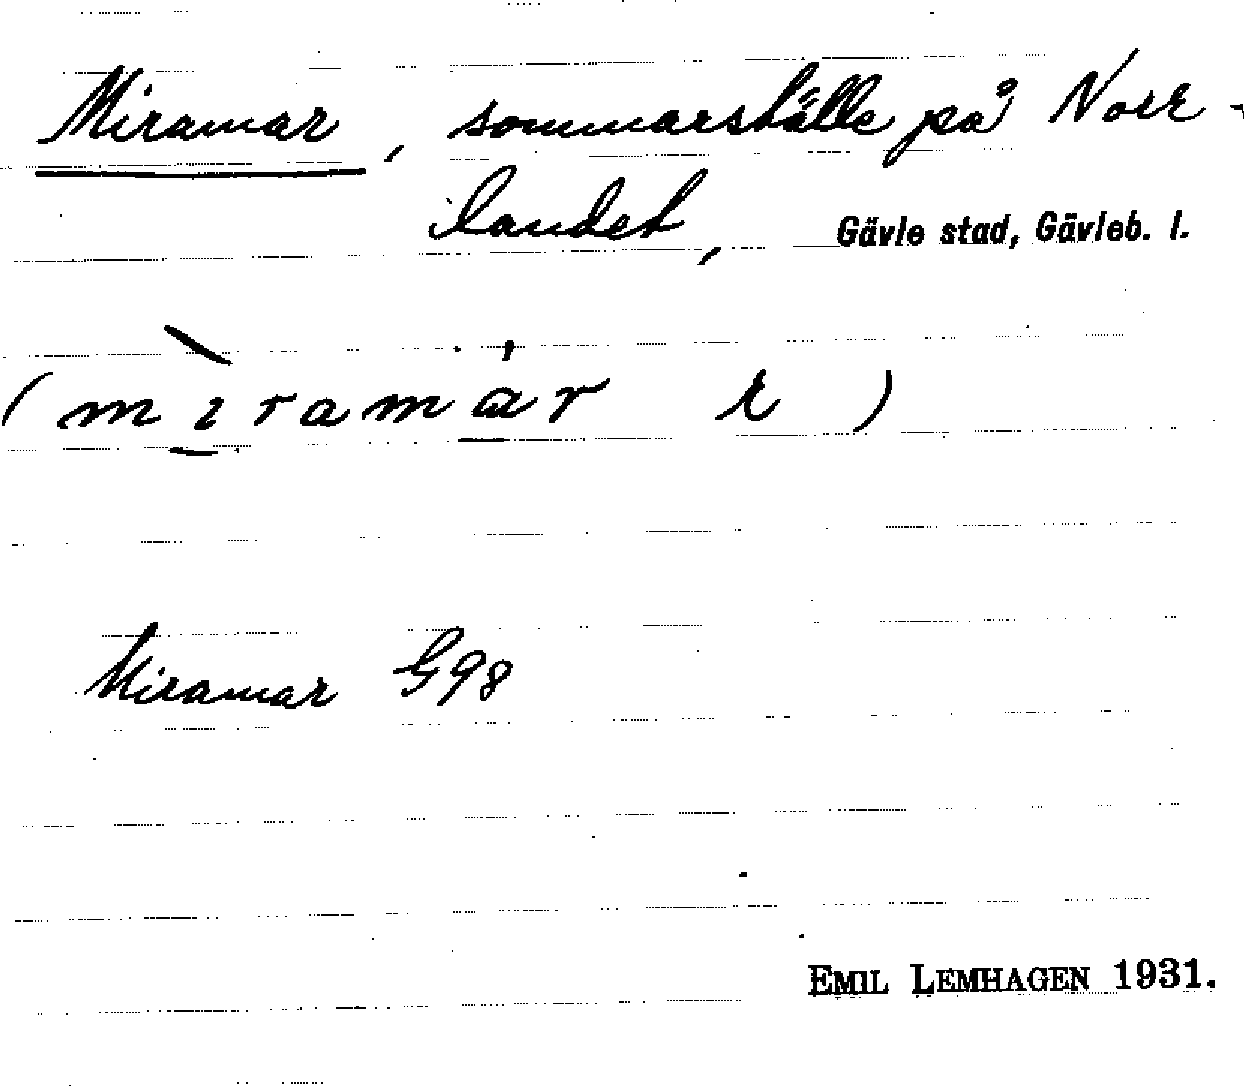 Miramar, sommarställe på Norr-
landet, Gävle stad, Gävleb. l.
(mìramár r)
Miramar G98
EMIL LEMHAGEN 1931.